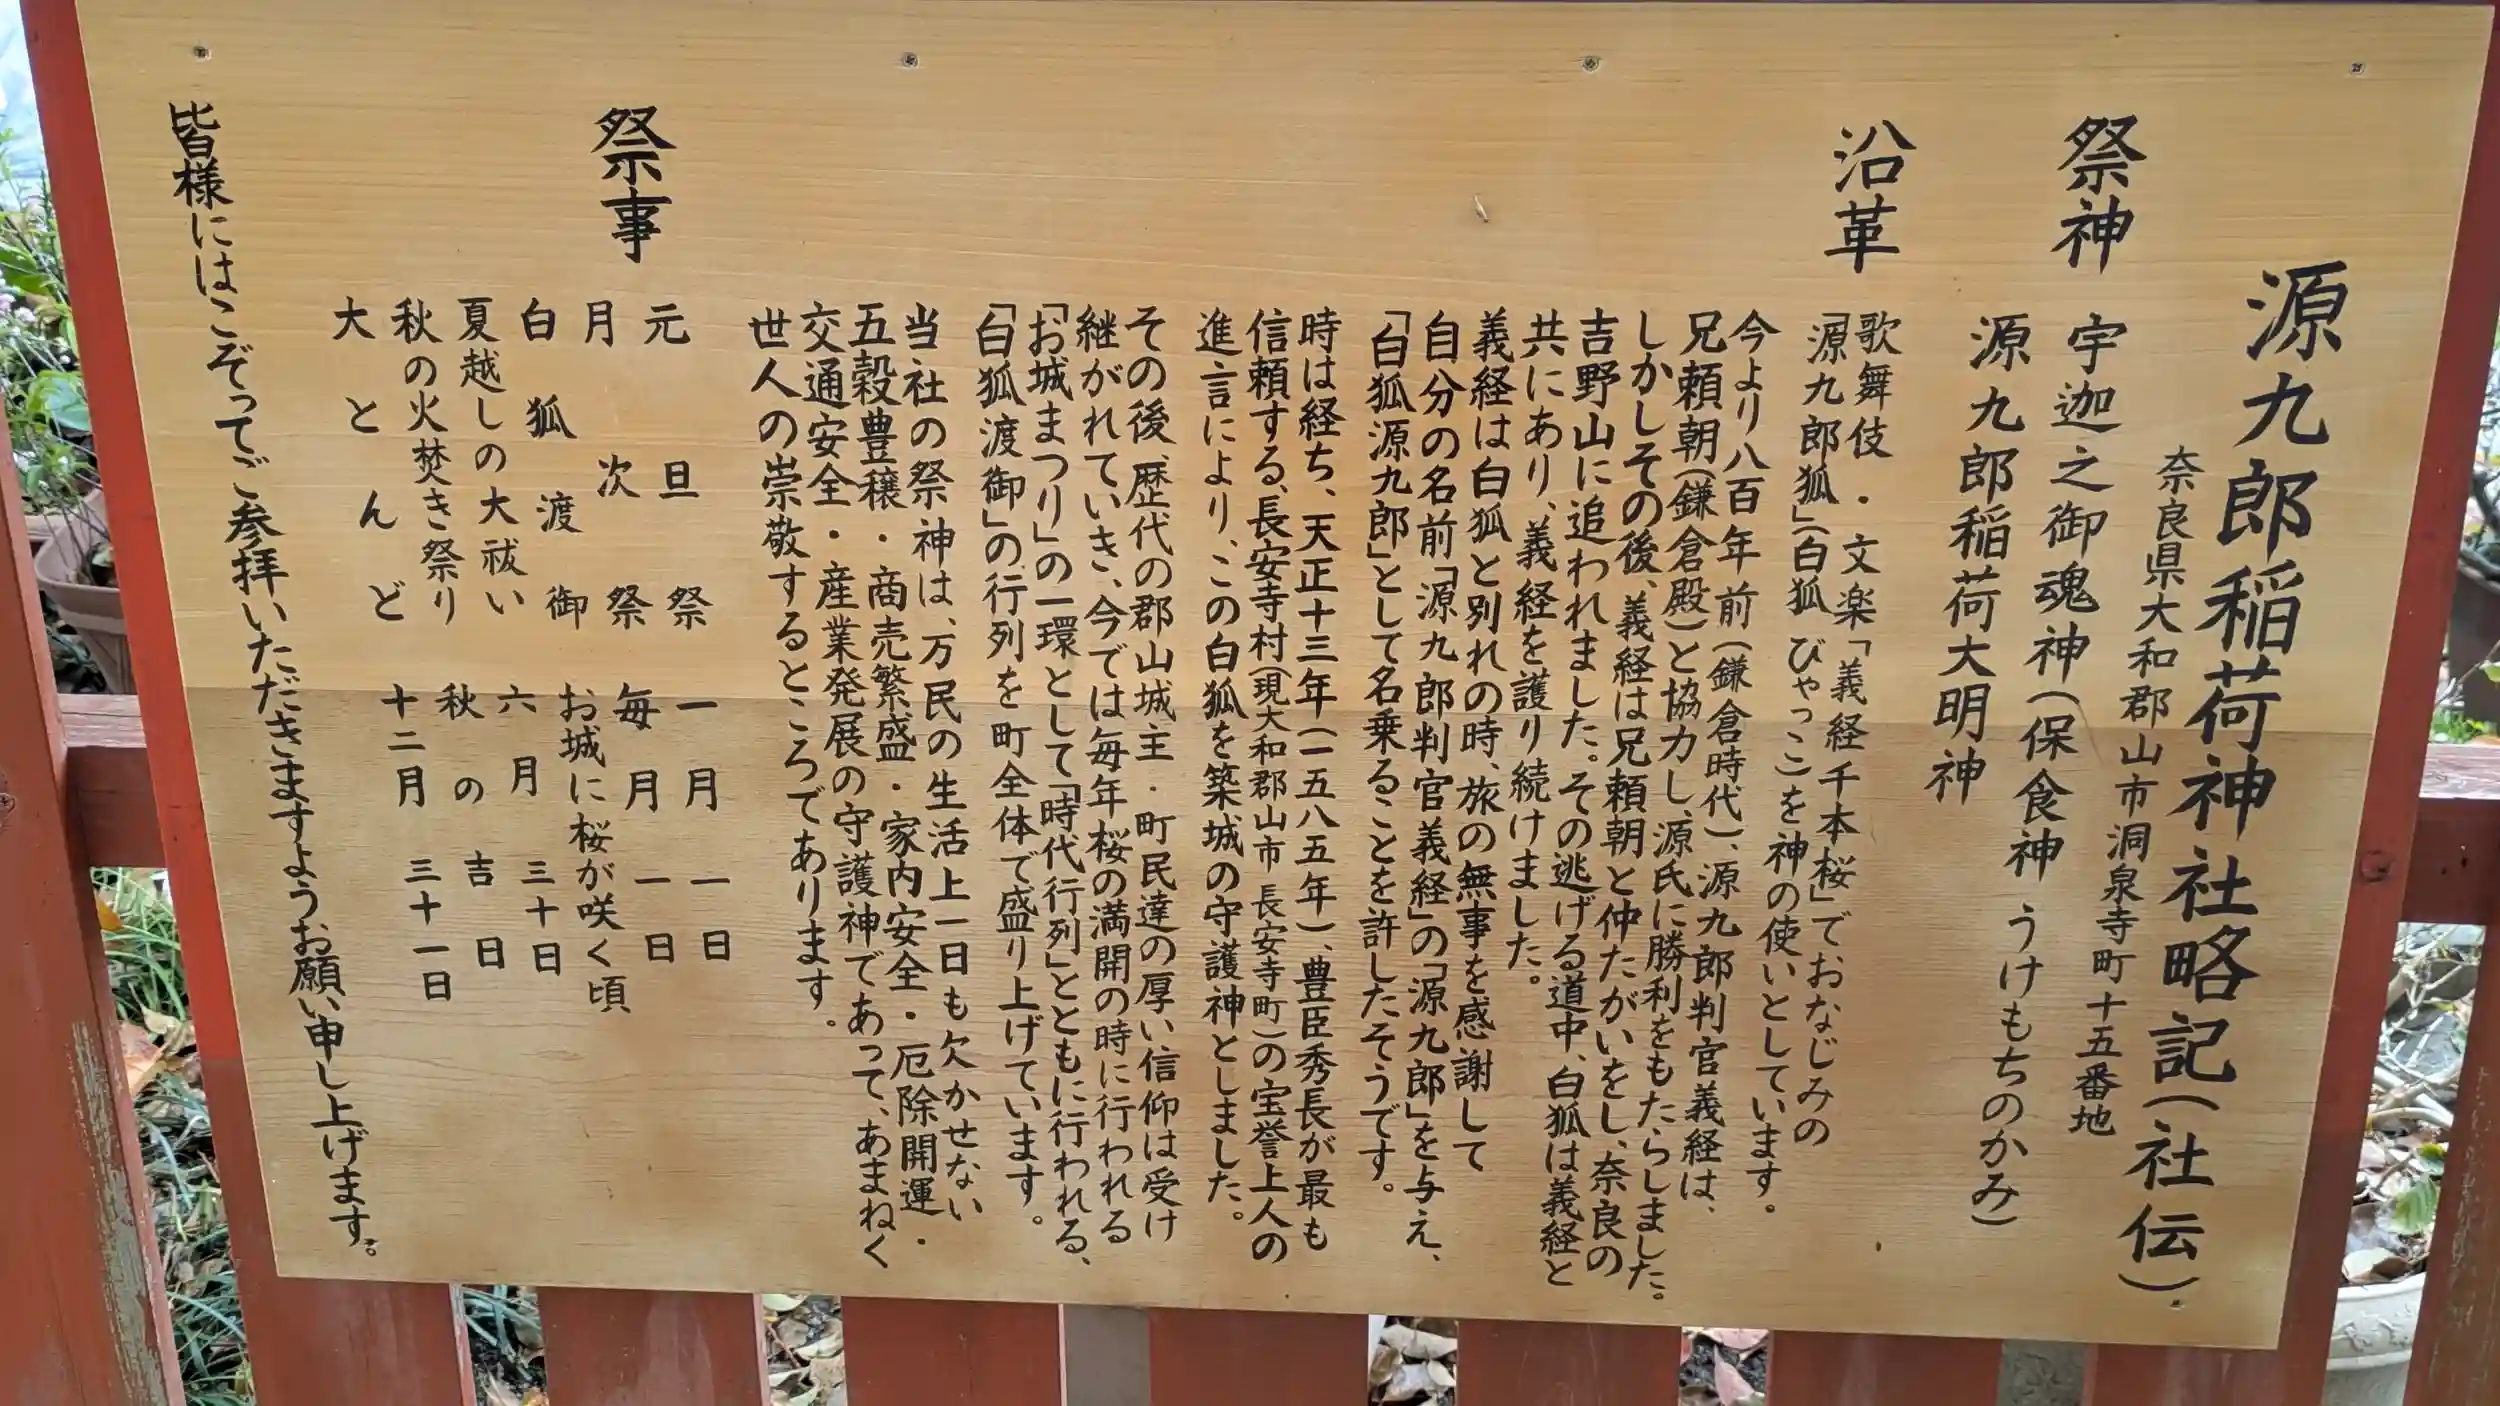 源九郎稲荷神社略記（社伝）
奈良県大和郡山市洞泉寺町十五番地
祭神
宇迦之御魂神（保食神 うけもちのかみ）
源九郎稲荷大明神
沿革
歌舞伎・文楽「義経千本桜」でおなじみの
「源九郎狐」（白狐 びゃっこ）を神の使いとしています。
今より八百年前（鎌倉時代）、源九郎判官義経は、
兄頼朝（鎌倉殿）と協力し、源氏に勝利をもたらしました。
しかしその後、義経は兄頼朝と仲たがいをし、奈良の
吉野山に追われました。その逃げる道中、白狐は義経と
共にあり、義経を護り続けました。
義経は白狐と別れの時、旅の無事を感謝して
自分の名前「源九郎判官義経」の「源九郎」を与え、
「白狐源九郎」として名乗ることを許したそうです。
時は経ち、天正十三年（一五八五年）、豊臣秀長が最も
信頼する、長安寺村（現大和郡山市長安寺町）の宝誉上人の
進言により、この白狐を築城の守護神としました。
その後、歴代の郡山城主・町民達の厚い信仰は受け
継がれていき、今では毎年桜の満開の時に行われる
「お城まつり」の一環として「時代行列」とともに行われる、
「白狐渡御」の行列を町全体で盛り上げています。
当社の祭神は、万民の生活上一日も欠かせない
五穀豊穣・商売繁盛・家内安全・厄除開運・
交通安全・産業発展の守護神であって、あまねく
世人の崇敬するところであります。
祭事
元旦祭 一月一日
月次祭 毎月一日
白狐渡御 お城に桜が咲く頃
夏越しの大祓い 六月三十日
秋の火焚き祭り 秋の吉日
大とんど 十二月三十一日
皆様にはこぞってご参拝いただきますようお願い申し上げます。